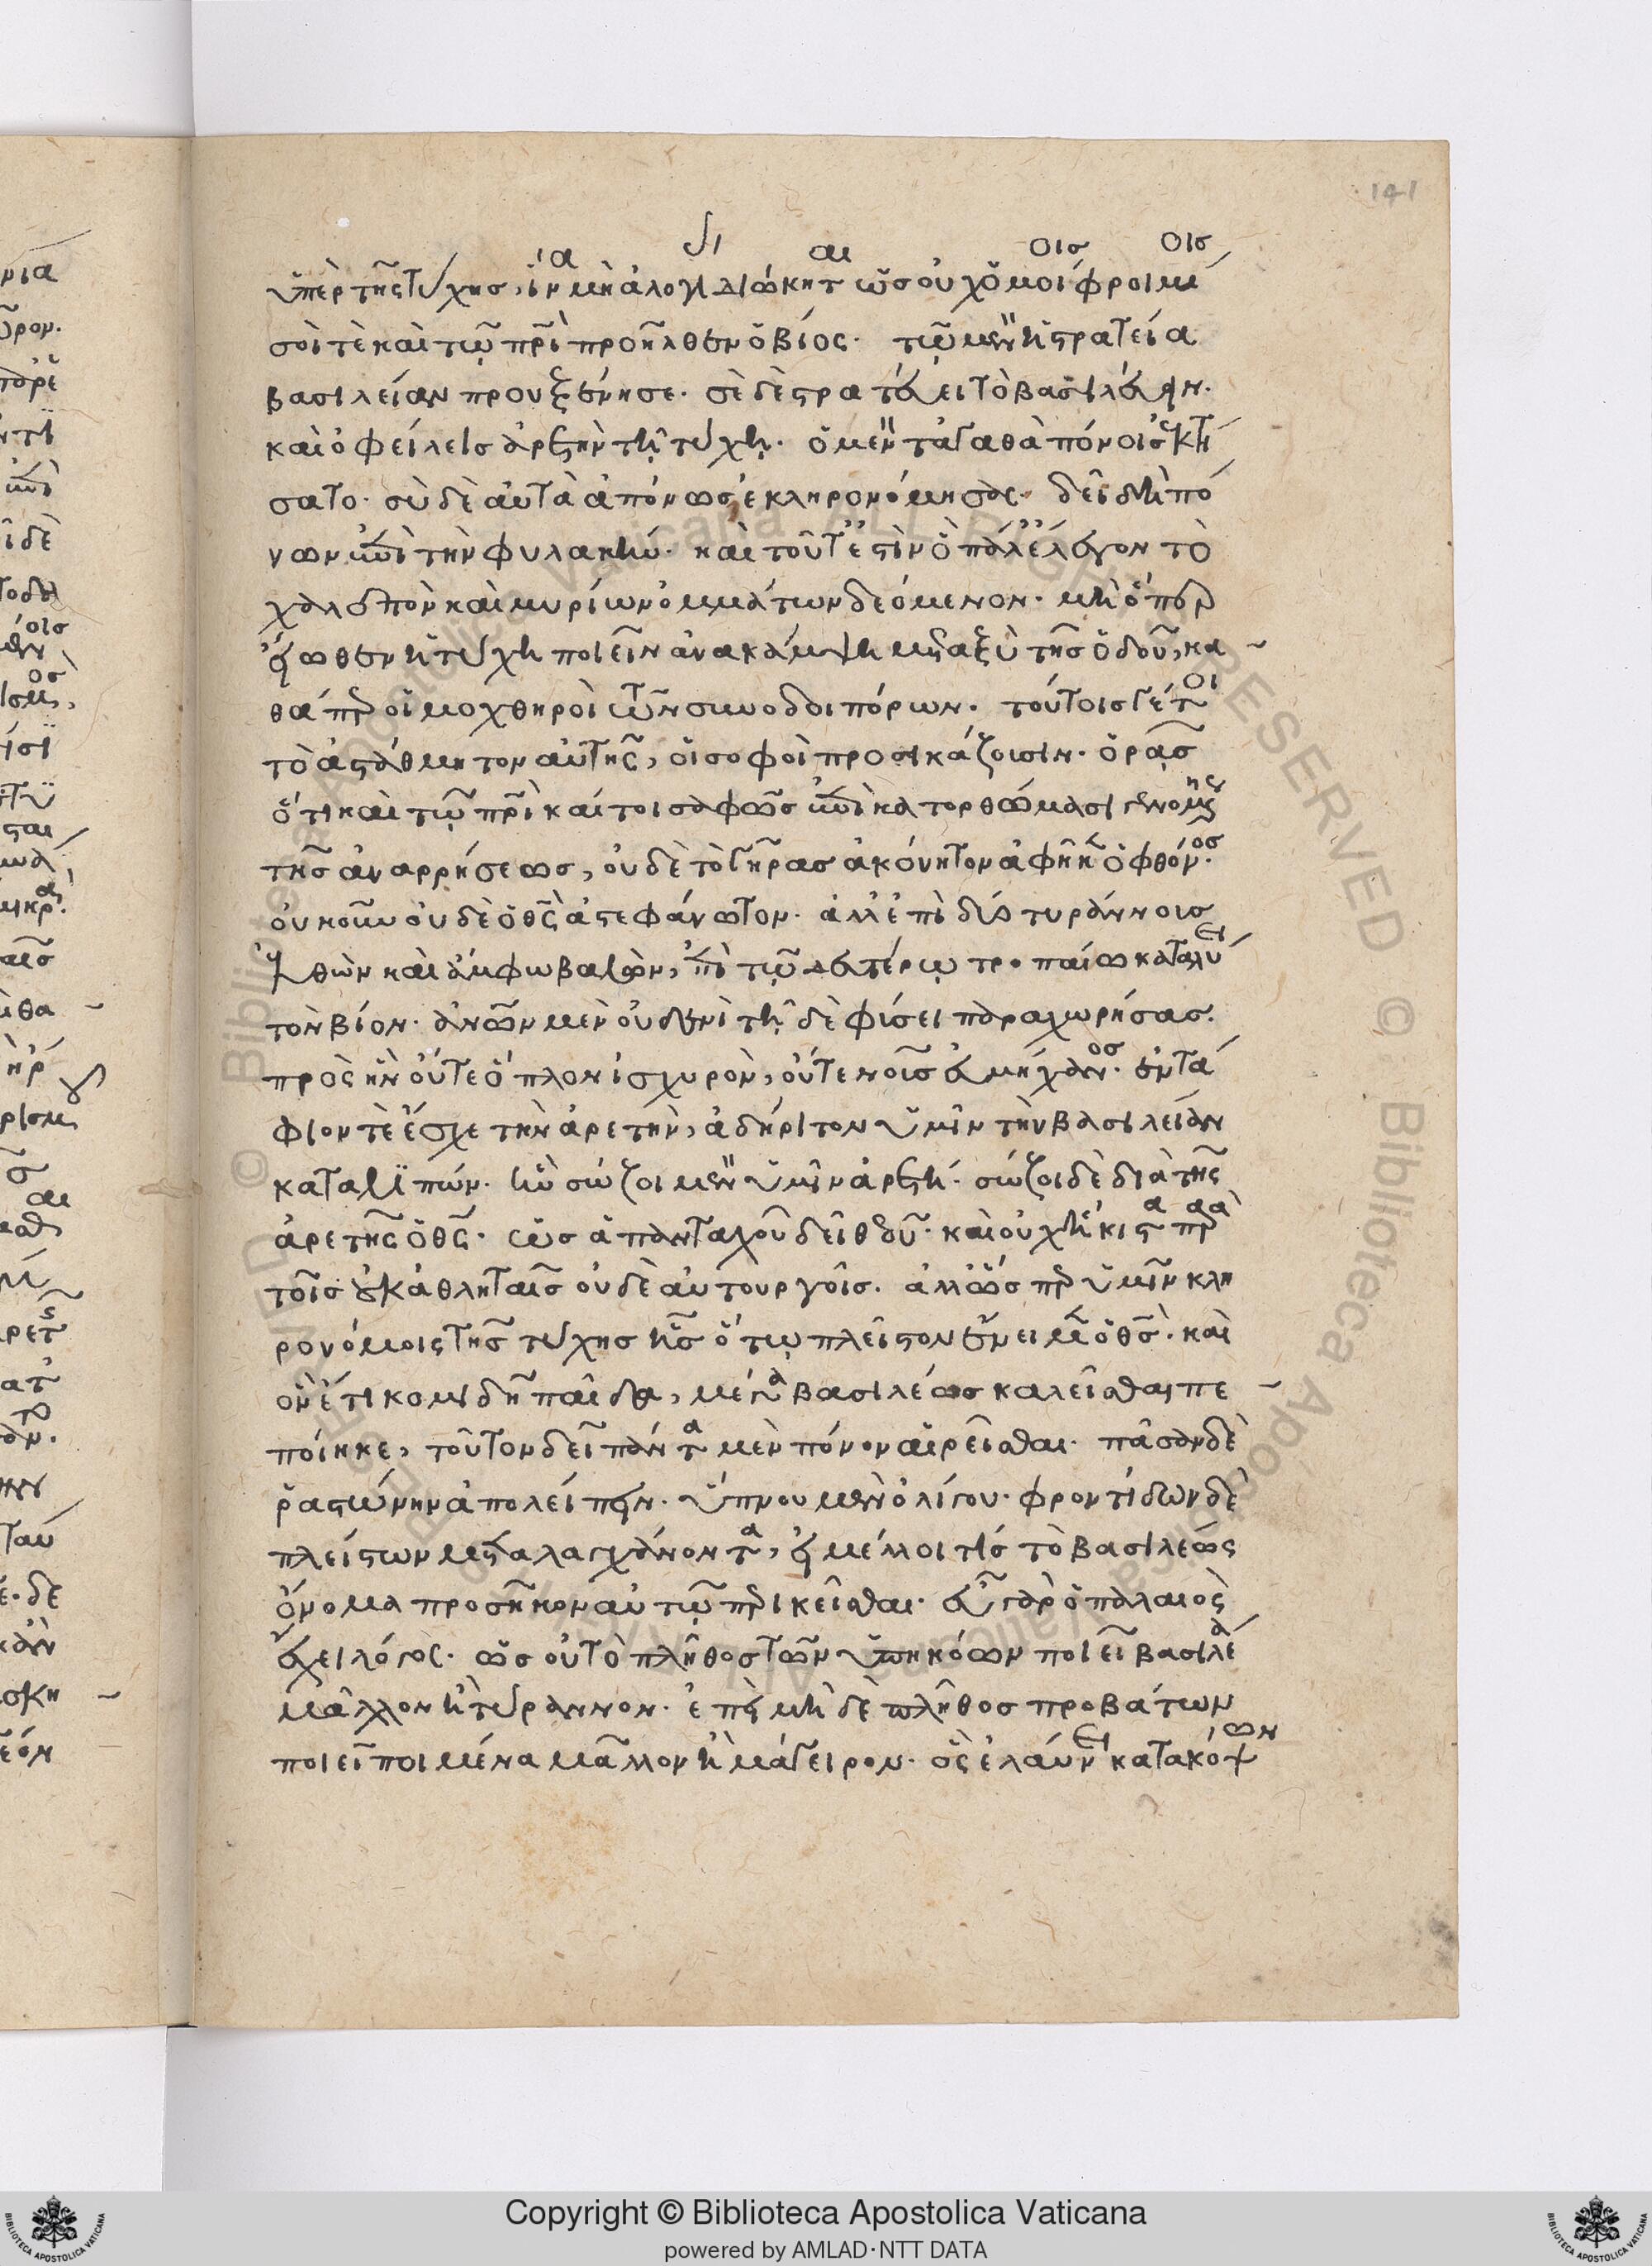 141
ὑπὲρ τῆς τύχης, ἵνα μὴ ἀλογία διώκηται ὡς οὐχ ὁμοίοις φροιμίοις
σοί τε καὶ τῷ πρὶ προῆλθεν ὁ βίος. τῷ μὲν ἡ στρατεία
βασιλείαν προυξένησε. σὲ δὲ στρατεύει τὸ βασιλεύειν.
καὶ ὀφείλεις ἀρετὴν τῇ τύχῃ. ὁ μὲν τἀγαθὰ πόνοις ἐκτή
σατο. σὺ δὲ αὐτὰ ἀπόνως ἐκληρονόμησας. δεῖ δὴ πό
νων ἐπὶ τὴν φυλακήν. καὶ τοῦτ' ἐστὶν ὃ πάλαι ἔλεγον τὸ
χαλεπὸν καὶ μυρίων ὀμμάτων δεόμενον. μὴ ὅπερ
εἴωθεν ἡ τύχη ποιεῖν ἀνακάμψῃ μεταξὺ τῆς ὁδοῦ, κα
θάπερ οἱ μοχθηροὶ τῶν συνοδοιπόρων. τούτοις γέ τοι
τὸ ἀστάθμητον αὐτῆς, οἱ σοφοὶ προσεικάζουσιν. ὁρᾷς
ὅτι καὶ τῷ πρὶ καίτοι σαφῶς ἐπὶ κατορθώμασι γενομένης
τῆς ἀναρρήσεως, οὐδὲ τὸ γῆρας ἀκόνητον ἀφῆκεν ὁ φθόνος.
οὐκοῦν οὐδὲ ὁ θς ἀστεφάνωτον. ἀλλ' ἐπὶ δύο τυράννοις
ἐλθὼν καὶ ἄμφω βαλὼν, ἐπὶ τῷ δευτέρῳ τροπαίω καταλύει
τὸν βίον. ἀνων μὲν οὐδενὶ τῇ δὲ φύσει παραχωρήσας.
πρὸς ἣν οὔτε ὅπλον ἰσχυρὸν, οὔτε νοῦς εὐμήχανος. ἐντά
φιον τὲ ἔσχε τὴν ἀρετὴν, ἀδήριτον ὑμῖν τὴν βασιλείαν
καταλιπών. ἣν σώζοι μὲν ὑμῖν ἀρετή. σώζοι δὲ διὰ τῆς
ἀρετῆς ὁ θς. ὡς ἁπανταχοῦ δεῖ θεοῦ. καὶ οὐχ ἥκιστα παρὰ
τοῖς οὐκ ἀθληταῖς οὐδὲ αὐτουργοῖς. ἀλλ' ὥσπερ ὑμῖν κλη
ρονόμοις τῆς τύχης ἧς ὅτῳ πλεῖστον ἔνειμεν ὁ θς. καὶ
ὃν ἔτι κομιδῇ παῖδα, μέγα βασιλέως καλεῖσθαι πε
ποίηκε, τοῦτον δεῖ πάντα μὲν πόνον αἱρεῖσθαι. πᾶσαν δὲ
ῥαστώνην ἀπολείπειν. ὕπνου μὲν ὀλίγου. φροντίδων δὲ
πλείστων μεταλαγχάνοντα, εἰ μέλλοι τίς τὸ βασιλέως
ὄνομα προσῆκον αὐτῷ περικεῖσθαι. εὖ γὰρ ὁ παλαιὸς
ἔχει λόγος. ὡς οὐ τὸ πλῆθος τῶν ὑπηκόων ποιεῖ βασιλέα
μᾶλλον ἢ τύραννον. ἐπεὶ μὴ δὲ πλῆθος προβάτων
ποιεῖ ποιμένα μᾶλλον ἢ μάγειρον. ὃς ἐλαύνει κατακόψων
Copyright © Biblioteca Apostolica Vaticana
powered by AMLAD·NTT DATA